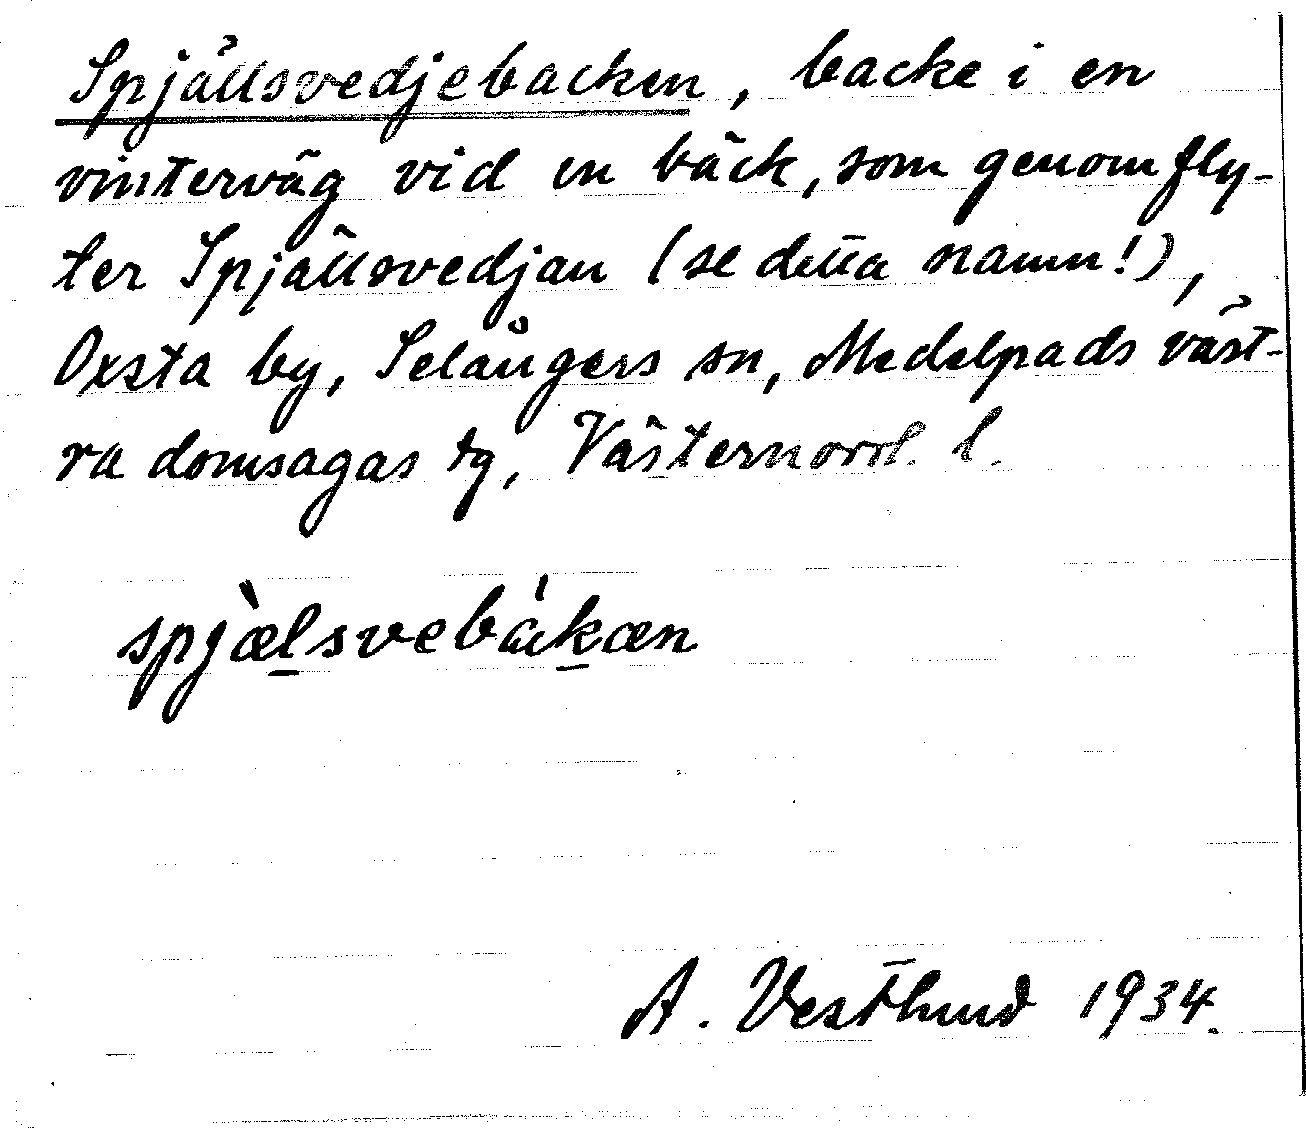 Spjällsvedjebacken, backe i en
vinterväg vid en bäck, som genomfly-
ter Spjällsvedjan (se detta namn!),
Oxsta by, Selångers sn, Medelpads väst-
ra domsagas tg, Västernorrl. l.
spjæ̀lsvebákæn
A. Vestlund 1934.